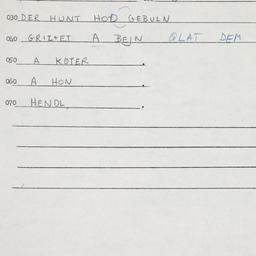 030 DER HUNT HOD GEBULN
040 GRIZTET A BEJN GLAT DEM
050 A KOTER.
060 A HON.
070 HENDL.